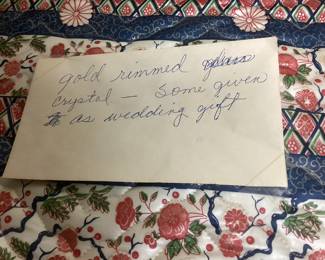 gold rimmed glass
crystal — Some given
as wedding gift